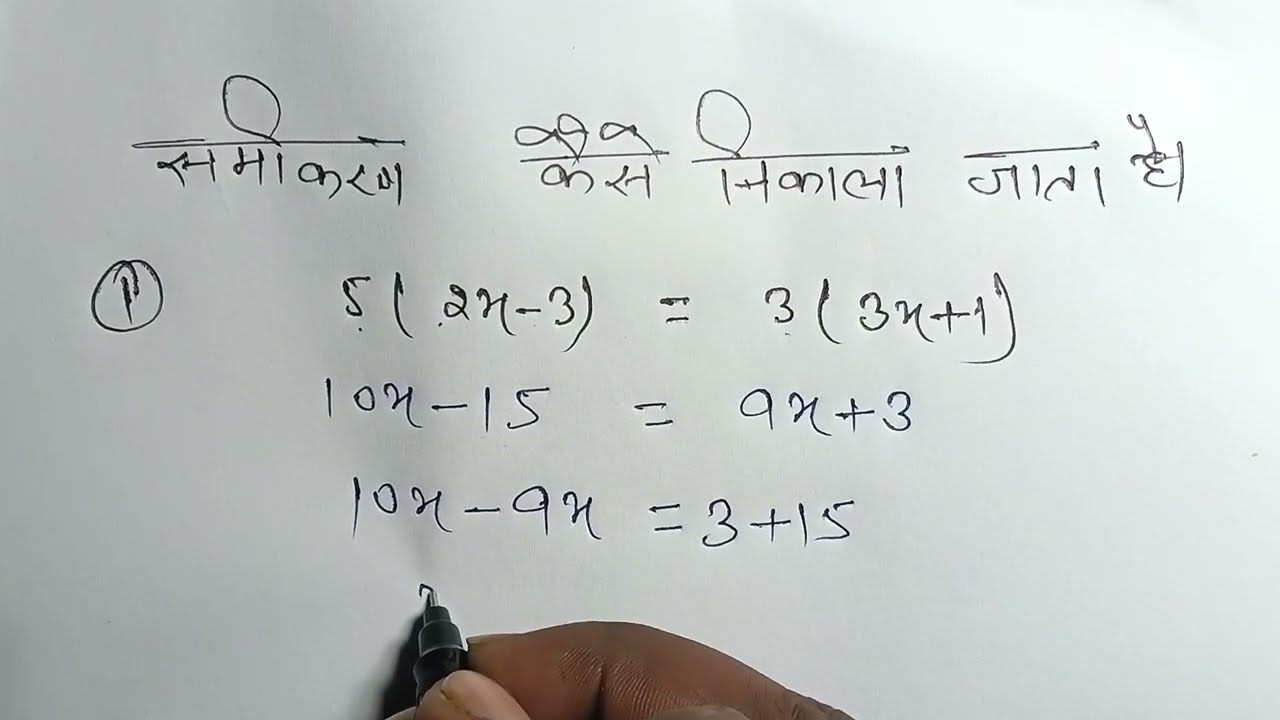 समीकरण कैसे निकाला जाता है।
① 5(2x-3) = 3(3x+1)
10x-15 = 9x+3
10x-9x = 3+15